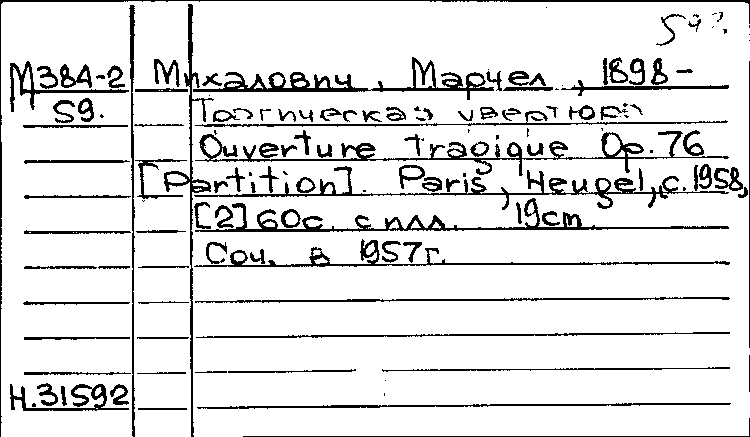 59?.
М384-2 Михалович, Марчел, 1898-
59. Трагическая увертюра
Ouverture Tragique Op. 76
[Partition]. Paris, Heugel, c. 1958,
[2] 60с. с илл. 19cm.
Соч. в 1957г.
Н.31592